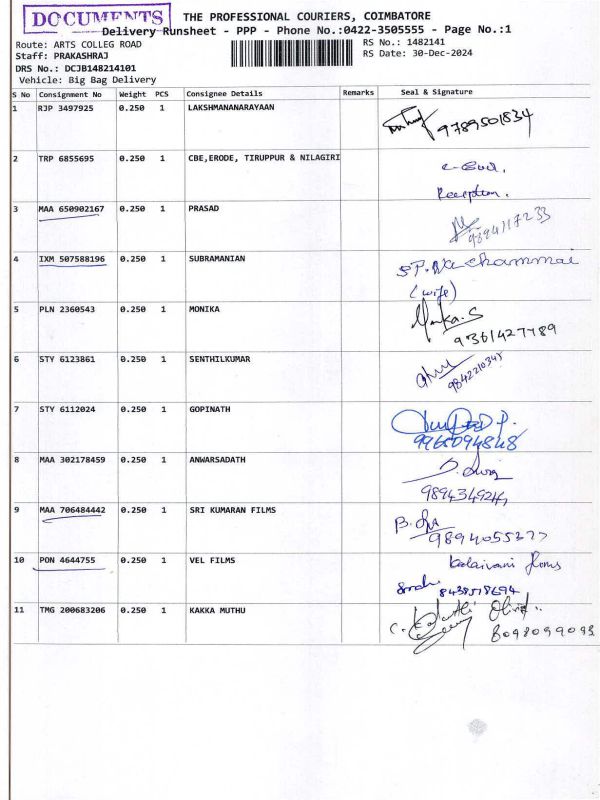 DOCUMENTS
THE PROFESSIONAL COURIERS, COIMBATORE
Delivery Runsheet - PPP - Phone No.:0422-3505555 - Page No.:1
Route: ARTS COLLEG ROAD
RS No.: 1482141
Staff: PRAKASHRAJ
RS Date: 30-Dec-2024
DRS No.: DCJB148214101
Vehicle: Big Bag Delivery
S No Consignment No Weight PCS Consignee Details Remarks Seal & Signature
1 RJP 3497925 0.250 1 LAKSHMANANARAYAAN
9789501834
2 TRP 6855695 0.250 1 CBE,ERODE, TIRUPPUR & NILAGIRI
Reception.
3 MAA 650902167 0.250 1 PRASAD
9894117233
4 IXM 507588196 0.250 1 SUBRAMANIAN
(wife)
5 PLN 2360543 0.250 1 MONIKA
9361427789
6 STY 6123861 0.250 1 SENTHILKUMAR
9842210345
7 STY 6112024 0.250 1 GOPINATH
9965094848
8 MAA 302178459 0.250 1 ANWARSADATH
9 MAA 706484442 0.250 1 SRI KUMARAN FILMS
9894055377
10 PON 4644755 0.250 1 VEL FILMS
Kalaivani films
8438518694
11 TMG 200683206 0.250 1 KAKKA MUTHU
8098099093